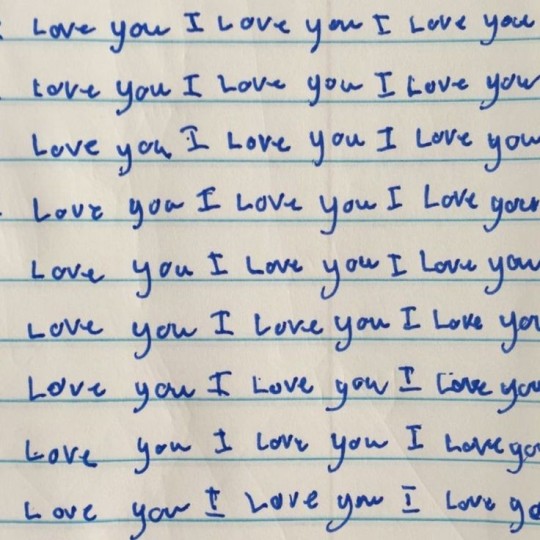 Love you I Love you I Love you
Love you I Love you I Love you
Love you I Love you I Love you
Love you I Love you I Love your
Love you I Love you I Love you
Love you I Love you I Love you
Love you I Love you I Love you
Love you I Love you I Love go
Love you I Love you I Love go